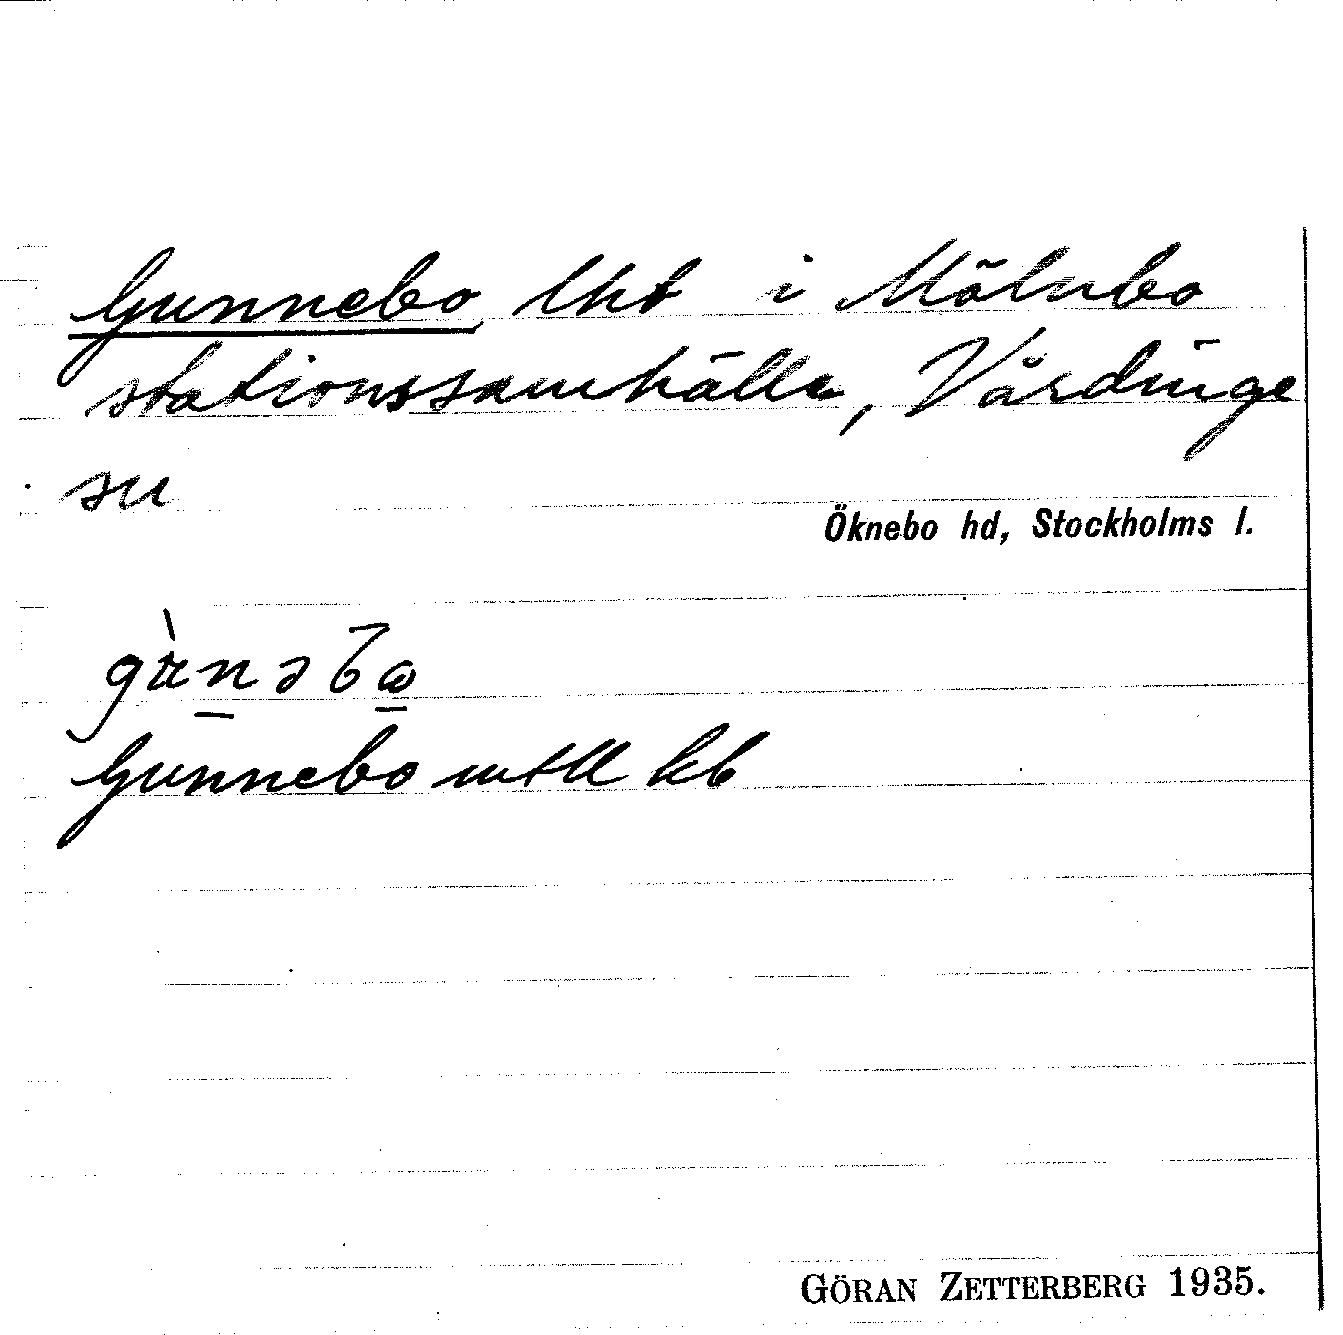 Gunnebo lht i Mölnbo
stationssamhälle, Vårdinge
sn
Öknebo hd, Stockholms l.
Gunnebo mtll kb
GÖRAN ZETTERBERG 1935.